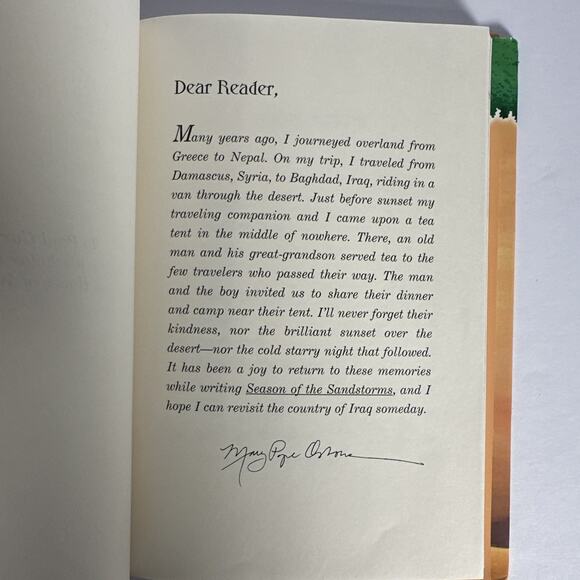 Dear Reader,
Many years ago, I journeyed overland from
Greece to Nepal. On my trip, I traveled from
Damascus, Syria, to Baghdad, Iraq, riding in a
van through the desert. Just before sunset my
traveling companion and I came upon a tea
tent in the middle of nowhere. There, an old
man and his great-grandson served tea to the
few travelers who passed their way. The man
and the boy invited us to share their dinner
and camp near their tent. I'll never forget their
kindness, nor the brilliant sunset over the
desert—nor the cold starry night that followed.
It has been a joy to return to these memories
while writing Season of the Sandstorms, and I
hope I can revisit the country of Iraq someday.
Mary Pope Osborne